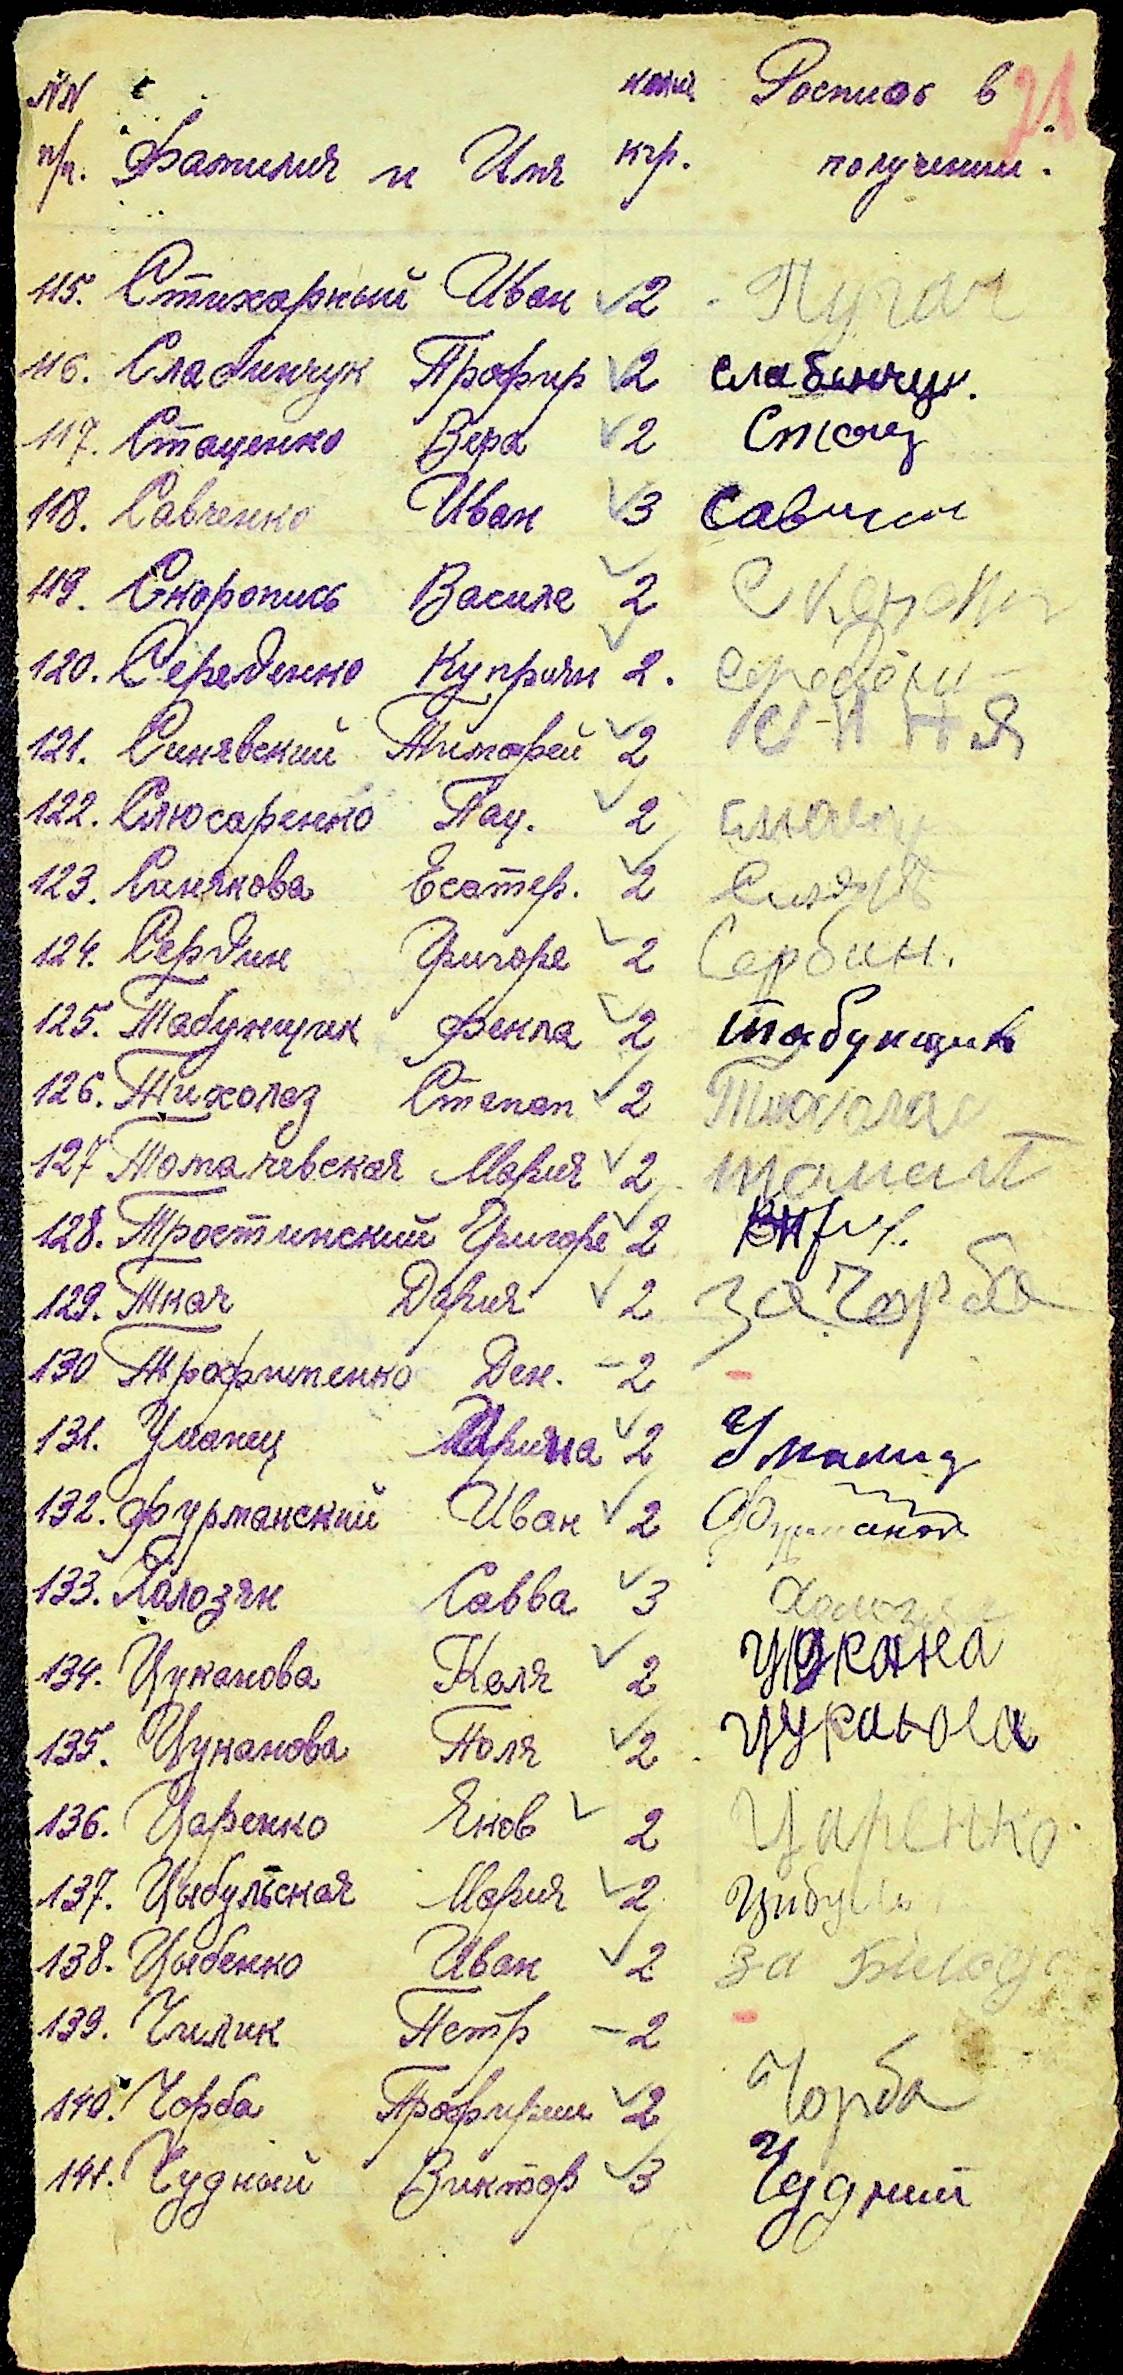 NN Роспись в 71
п/п. Фамилия и Имя кгр. получении.
115. Стихарный Иван √2 Пугач
116. Слабинчук Профир √2 слабинчук.
117. Стаценко Вера √2 Стац
118. Савченко Иван √3 Савчен
119. Скоропись Василе √2
120. Середенко Куприян √2. середени
121. Синявский Тимофей √2 СИНЯ
122. Слюсаренко Пац. √2
123. Синякова Есатер. √2
124. Сербин Григоре √2 Сербин.
125. Табунщик Фекла √2 табунщик
126. Тихолаз Степан √2 Тихолаз
127 Томачевская Мария √2 томат
128. Тростинский Григоре √2
129. Ткач Дария √2 за Чорба
130 Трофименко Дек. – 2 –
131. Уманец Ирина √2 Уманец
132. Фурманский Иван √2 Фурманск
133. Халозян Савва √3 Халозян
134. Цуканова Каля √2 Цукана
135. Цуканова Поля √2 Цуканова
136. Царенко Яков √2 Царенко.
137. Цыбульская Мария √2 Цибуль
138. Цыбенко Иван √2 за
139. Чилик Петр – 2 –
140. Чорба Профирий √2 Чорба
141. Чудный Виктор √3 Чудний